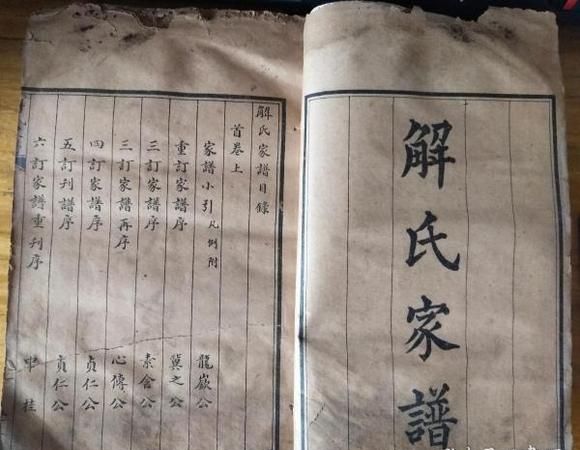 解氏家譜
解氏家譜目錄
首卷上
家譜小引 凡例附 龍嶽公
重訂家譜序 冀之公
三訂家譜序 素舍公
三訂家譜再序 心傳公
四訂家譜序 貞仁公
五訂刊譜序 貞仁公
六訂家譜重刊序 申桂